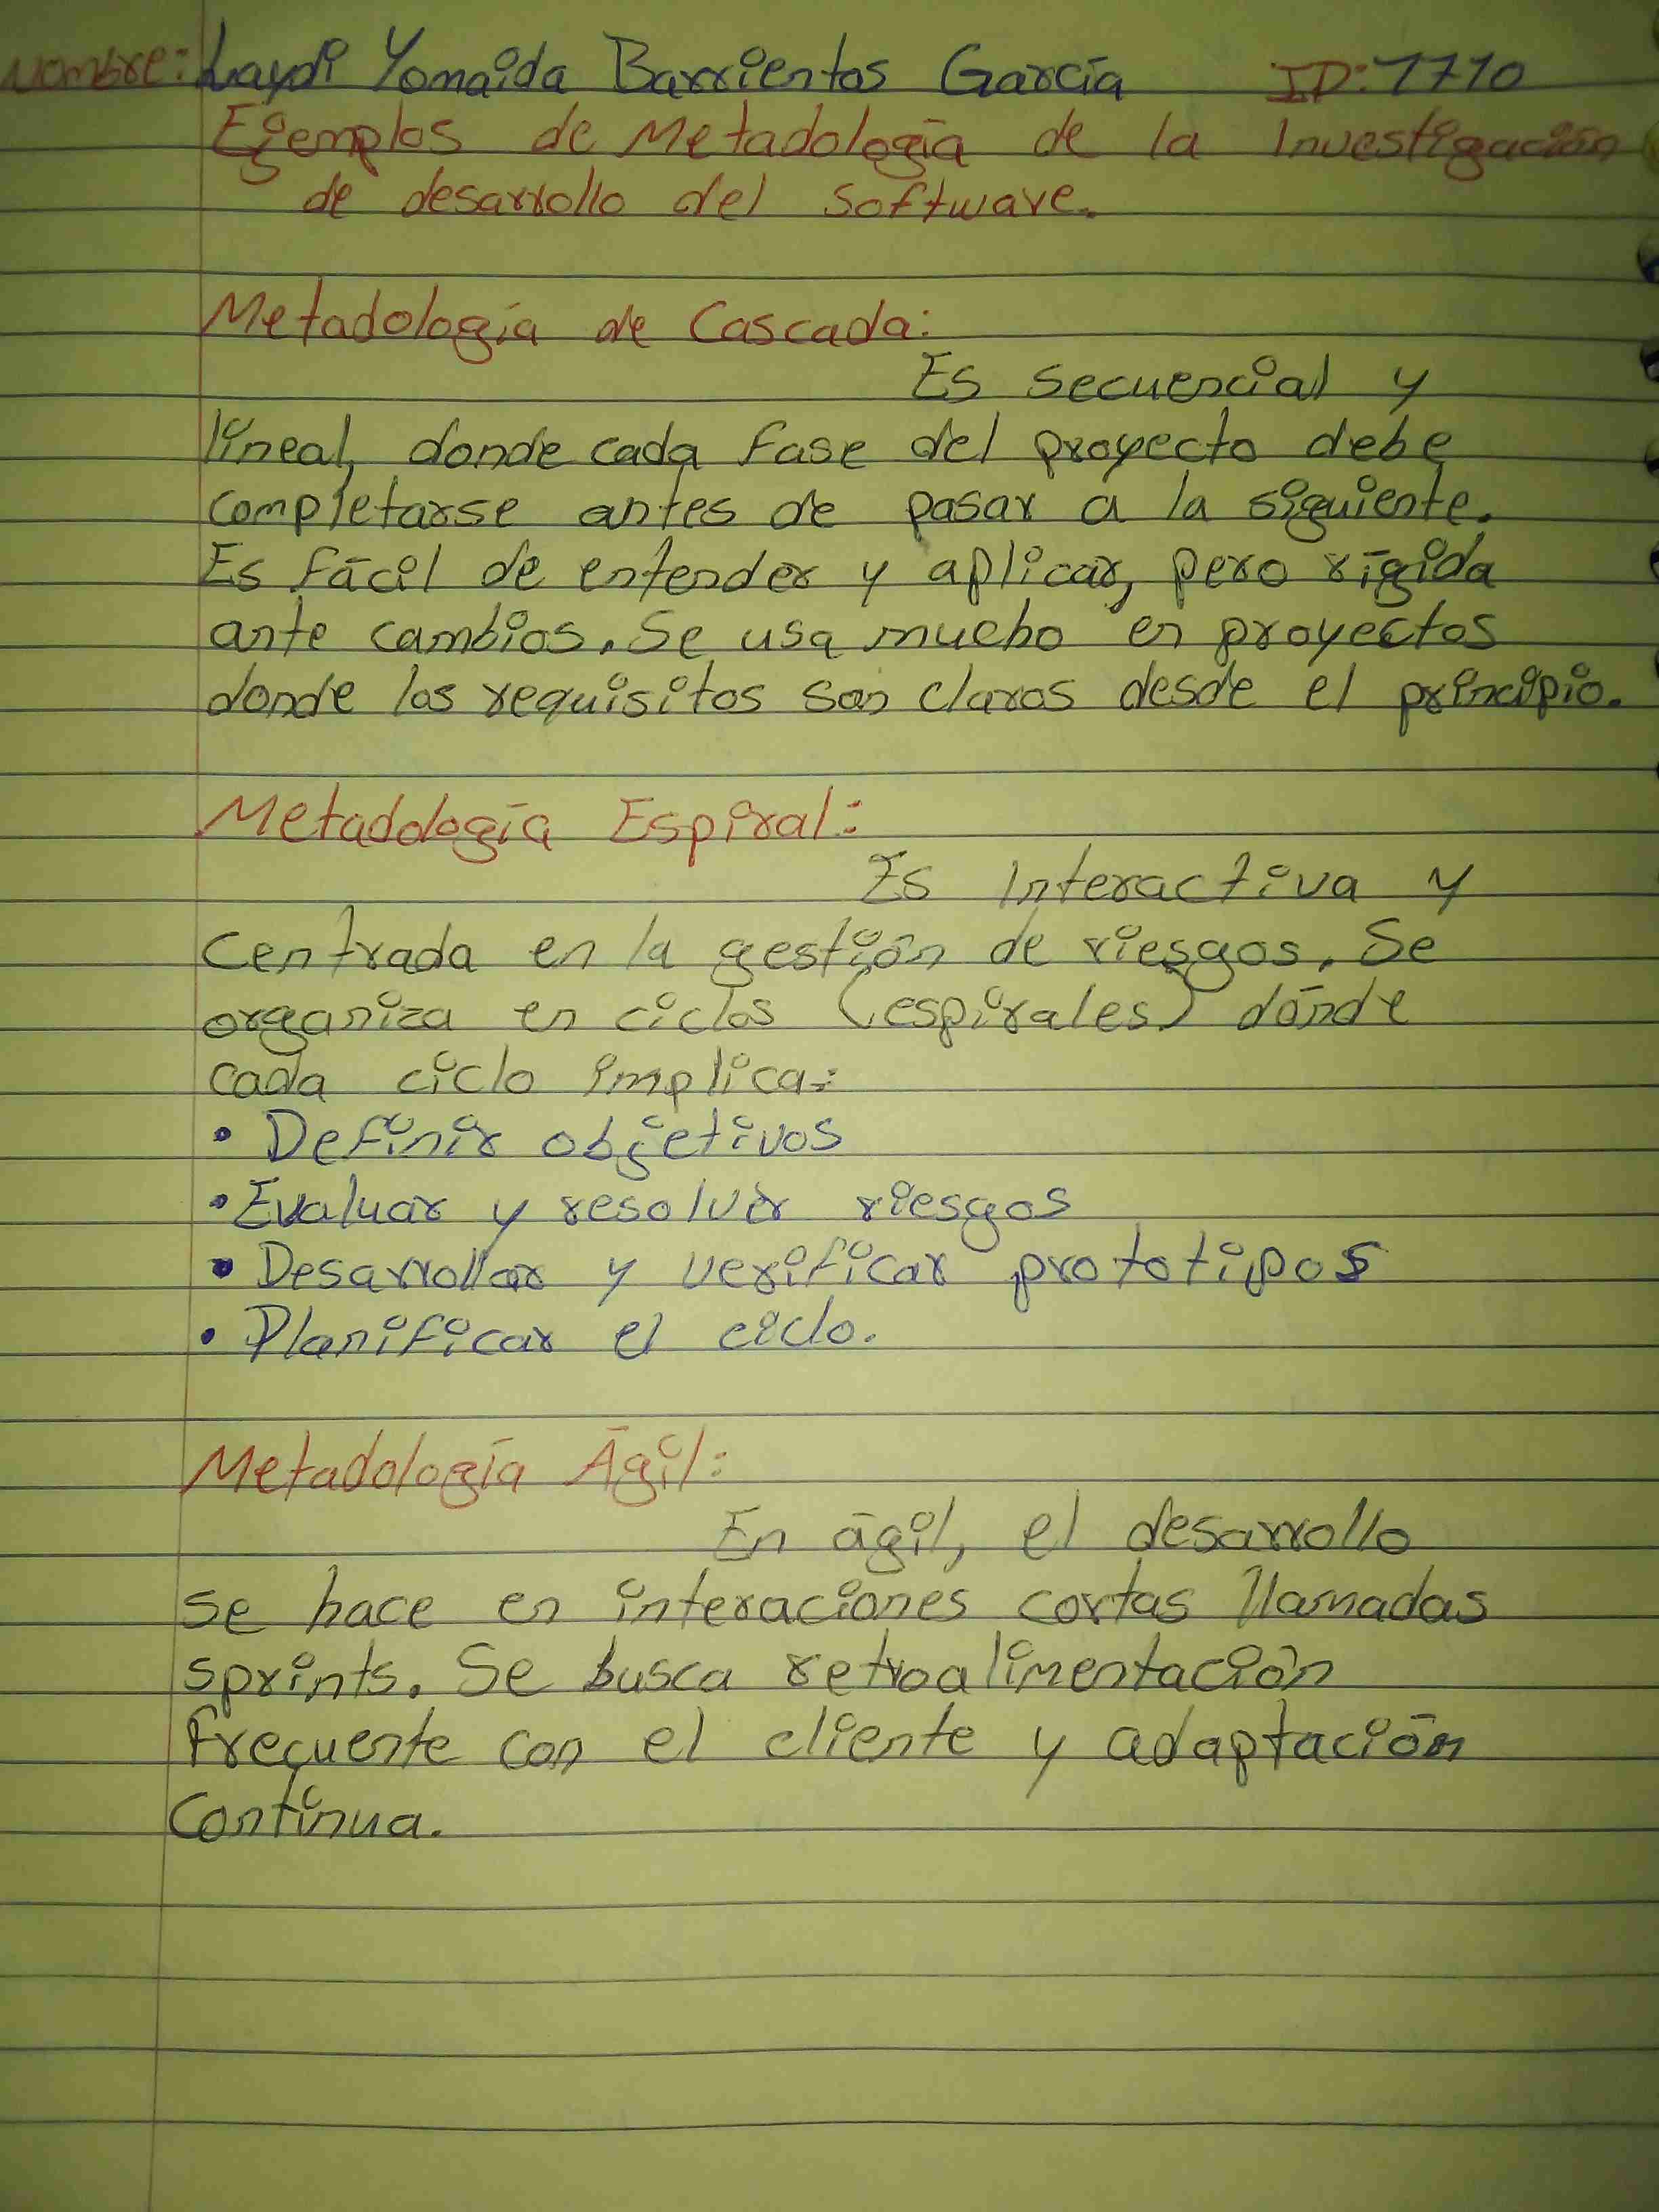 Nombre: Laydi Yomaida Barrientos García ID: 1710
Ejemplos de Metadología de la Investigación
de desarrollo del software.
Metadología de Cascada:
Es secuencial y
lineal, donde cada fase del proyecto debe
completarse antes de pasar a la siguiente.
Es fácil de entender y aplicar, pero rígida
ante cambios. Se usa mucho en proyectos
donde los requisitos son claros desde el principio.
Metadología Espiral:
Es Interactiva y
Centrada en la gestión de riesgos. Se
organiza en ciclos (espirales) dónde
cada ciclo implica:
• Definir objetivos
• Evaluar y resolver riesgos
• Desarrollar y verificar prototipos
• Planificar el ciclo.
Metadología Ágil:
En ágil, el desarrollo
se hace en interaciones cortas llamadas
sprints. Se busca retroalimentación
frecuente con el cliente y adaptación
continua.